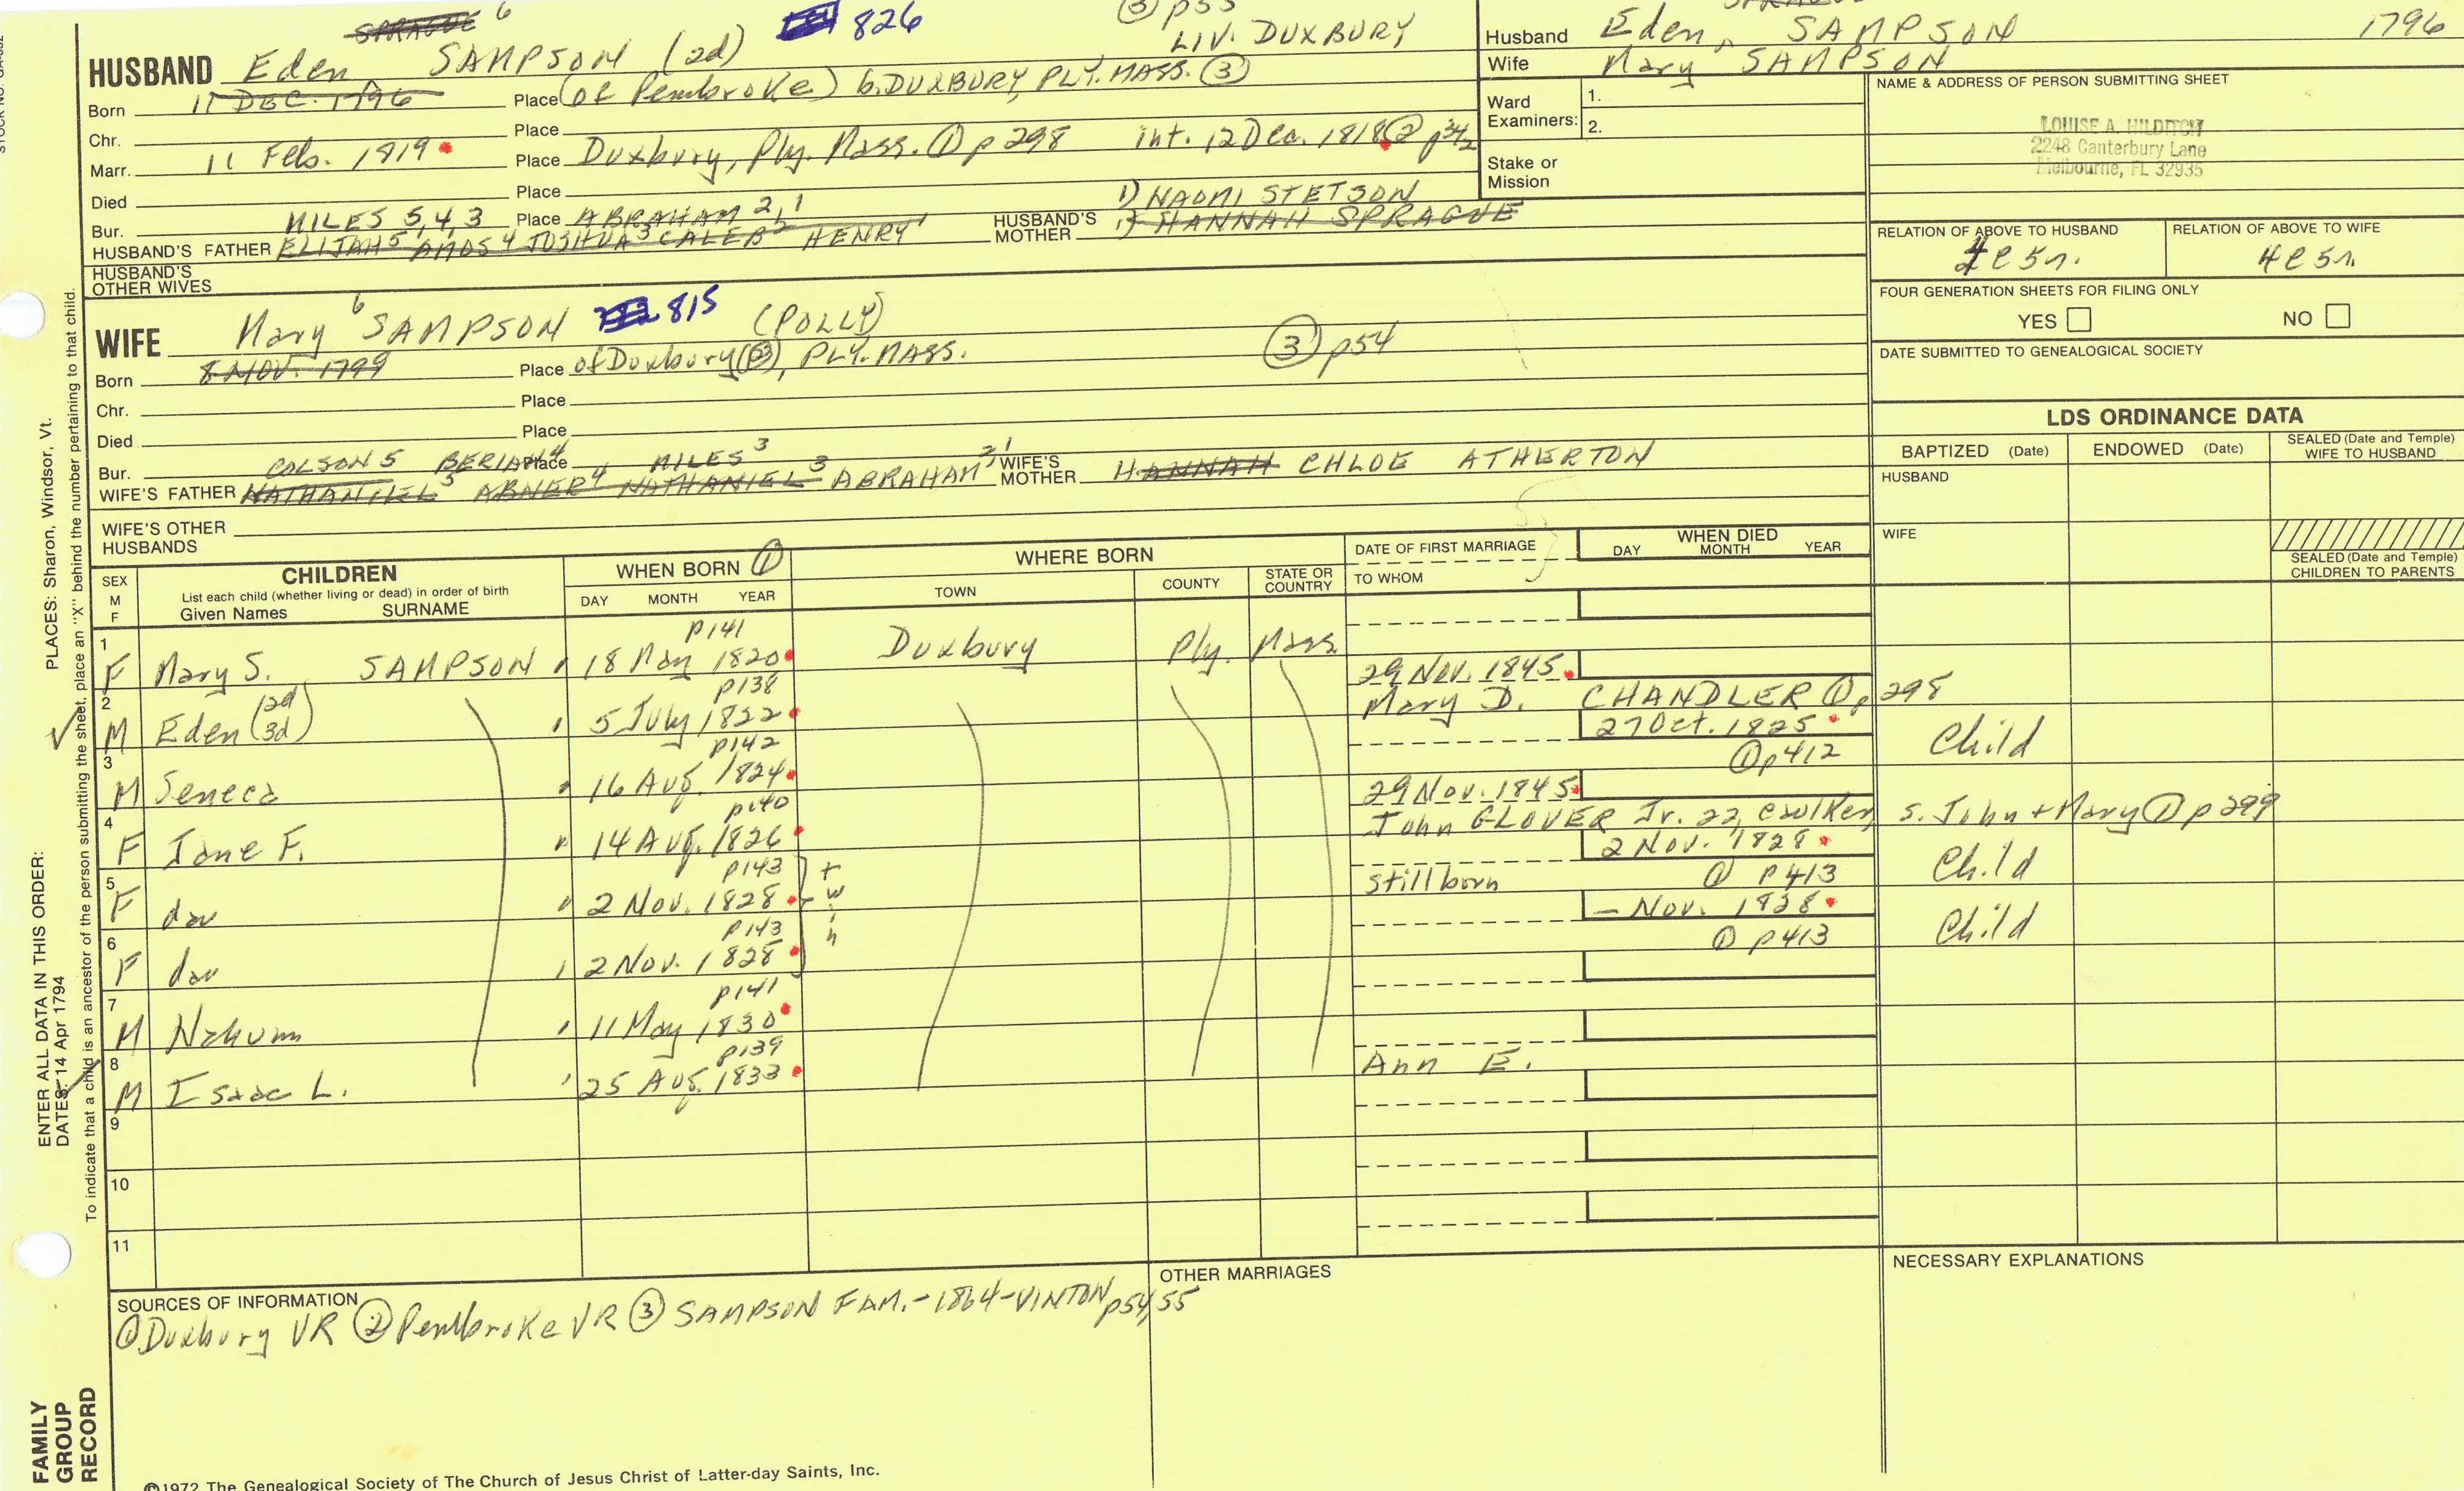 SPRAGUE 6
826
③ p55
LIV. DUXBURY
HUSBAND Eden SAMPSON (2d)
Born 11 DEC. 1796 Place (of Pembroke) b. DUXBURY, PLY. MASS. ③
Chr. Place
Marr. 11 Feb. 1819 Place Duxbury, Ply. Mass. ① p 298 int. 12 Dec. 1818 ② p342
Died Place
Bur. MILES 5,4,3 Place ABRAHAM 2,1
1) NAOMI STETSON
HUSBAND'S FATHER ELIJAH 5 AMOS 4 JOSHUA 3 CALEB 2 HENRY 1 HUSBAND'S MOTHER 1) HANNAH SPRAGUE
HUSBAND'S OTHER WIVES
Husband Eden SAMPSON 1796
Wife Mary SAMPSON
Ward Examiners: 1.
2.
Stake or Mission
NAME & ADDRESS OF PERSON SUBMITTING SHEET
LOUISE A. HILDITCH
2248 Canterbury Lane
Melbourne, FL 32935
RELATION OF ABOVE TO HUSBAND RELATION OF ABOVE TO WIFE
4C5r. 4C5r.
FOUR GENERATION SHEETS FOR FILING ONLY
YES NO
DATE SUBMITTED TO GENEALOGICAL SOCIETY
WIFE Mary 6 SAMPSON 815 (POLLY)
Born 8 NOV. 1799 Place of Duxbury (③), PLY. MASS. ③ p54
Chr. Place
Died Place
Bur. COLSON 5 BERIAH 4 Place MILES 3
WIFE'S FATHER NATHANIEL 5 ABNER 4 NATHANIEL 3 ABRAHAM 2,1 WIFE'S MOTHER HANNAH CHLOE ATHERTON
WIFE'S OTHER HUSBANDS
LDS ORDINANCE DATA
BAPTIZED (Date) ENDOWED (Date) SEALED (Date and Temple) WIFE TO HUSBAND
HUSBAND
WIFE
SEALED (Date and Temple) CHILDREN TO PARENTS
SEX M F
CHILDREN
List each child (whether living or dead) in order of birth
Given Names SURNAME
WHEN BORN ①
DAY MONTH YEAR
WHERE BORN
TOWN COUNTY STATE OR COUNTRY
DATE OF FIRST MARRIAGE
TO WHOM
WHEN DIED
DAY MONTH YEAR
1 p141
F Mary S. SAMPSON 18 May 1820 Duxbury Ply. Mass
2 p138 29 Nov. 1845
M Eden (2d) (3d) 5 July 1822 Mary D. CHANDLER ① p 298
3 p142 27 Oct. 1825
M Seneca 16 Aug. 1824 ① p412 Child
4 p140 29 Nov. 1845
F Jane F. 14 Aug. 1826 John GLOVER Jr. 22, caulker, s. John + Mary ① p 299
5 p143 2 Nov. 1828
F dau 2 Nov. 1828 twin stillborn ① p413 Child
6 p143 — Nov. 1828
F dau 2 Nov. 1828 ① p413 Child
7 p141
M Nahum 11 May 1830
8 p139
M Isaac L. 25 Aug. 1833 Ann E.
9
10
11
SOURCES OF INFORMATION
① Duxbury VR ② Pembroke VR ③ SAMPSON FAM.-1864-VINTON p54,55
OTHER MARRIAGES
NECESSARY EXPLANATIONS
©1972 The Genealogical Society of The Church of Jesus Christ of Latter-day Saints, Inc.
FAMILY GROUP RECORD
ENTER ALL DATA IN THIS ORDER:
DATES: 14 Apr 1794
PLACES: Sharon, Windsor, Vt.
To indicate that a child is an ancestor of the person submitting the sheet, place an "X" behind the number pertaining to that child.